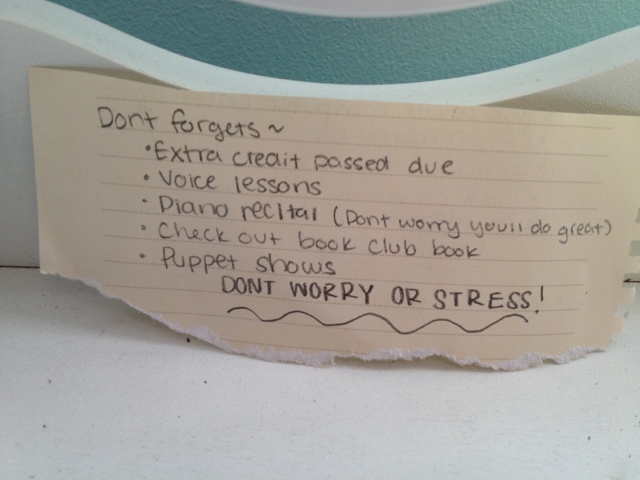 Dont forgets ~
• Extra credit passed due
• Voice lessons
• Piano recital (Dont worry youll do great)
• Check out book club book
• Puppet shows
DONT WORRY OR STRESS!